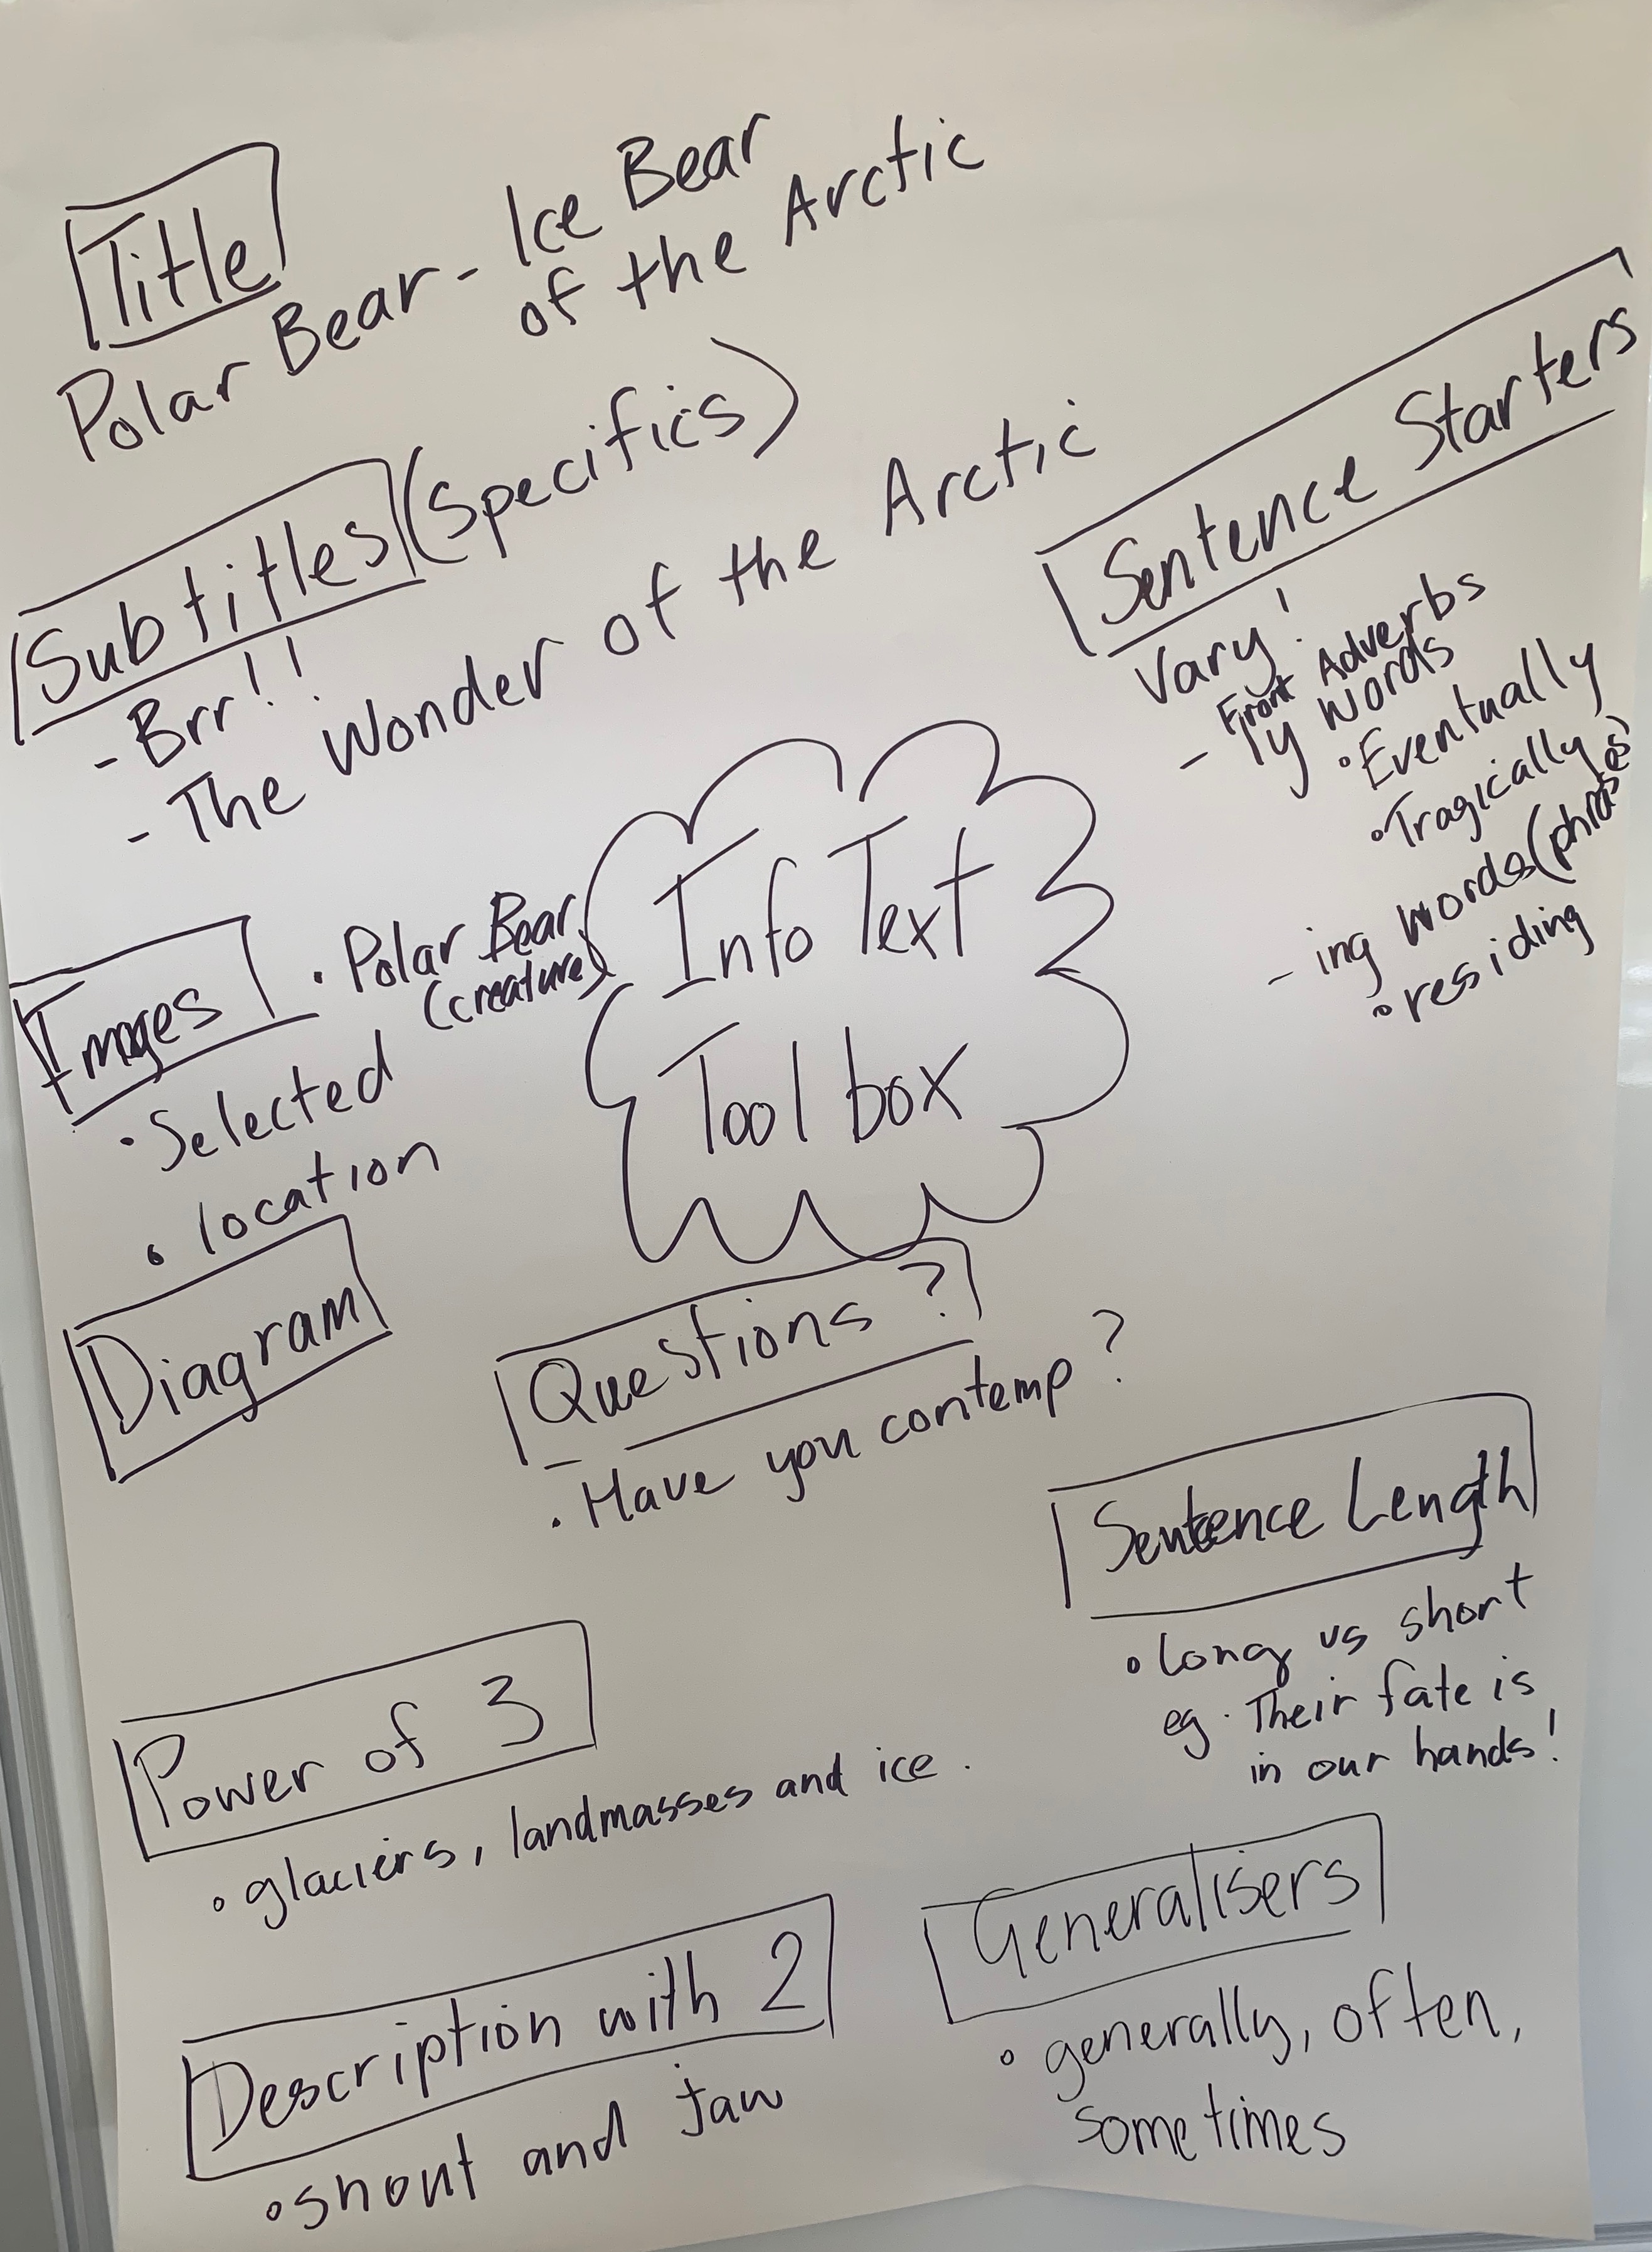 Title
Polar Bear - Ice Bear
of the Arctic
Subtitles (Specifics)
- Brr!!
- The Wonder of the Arctic
Sentence Starters
Vary!
Front Adverbs
- ly words
• Eventually
• Tragically
- ing words (phrases)
• residing
Info Text
Tool box
Images
• Polar Bear
(creature)
• Selected
• location
Diagram
Questions ?
• Have you contemp ?
Sentence Length
• long vs short
eg. Their fate is
in our hands!
Power of 3
• glaciers, landmasses and ice.
Description with 2
• snout and jaw
Generalisers
• generally, often,
sometimes